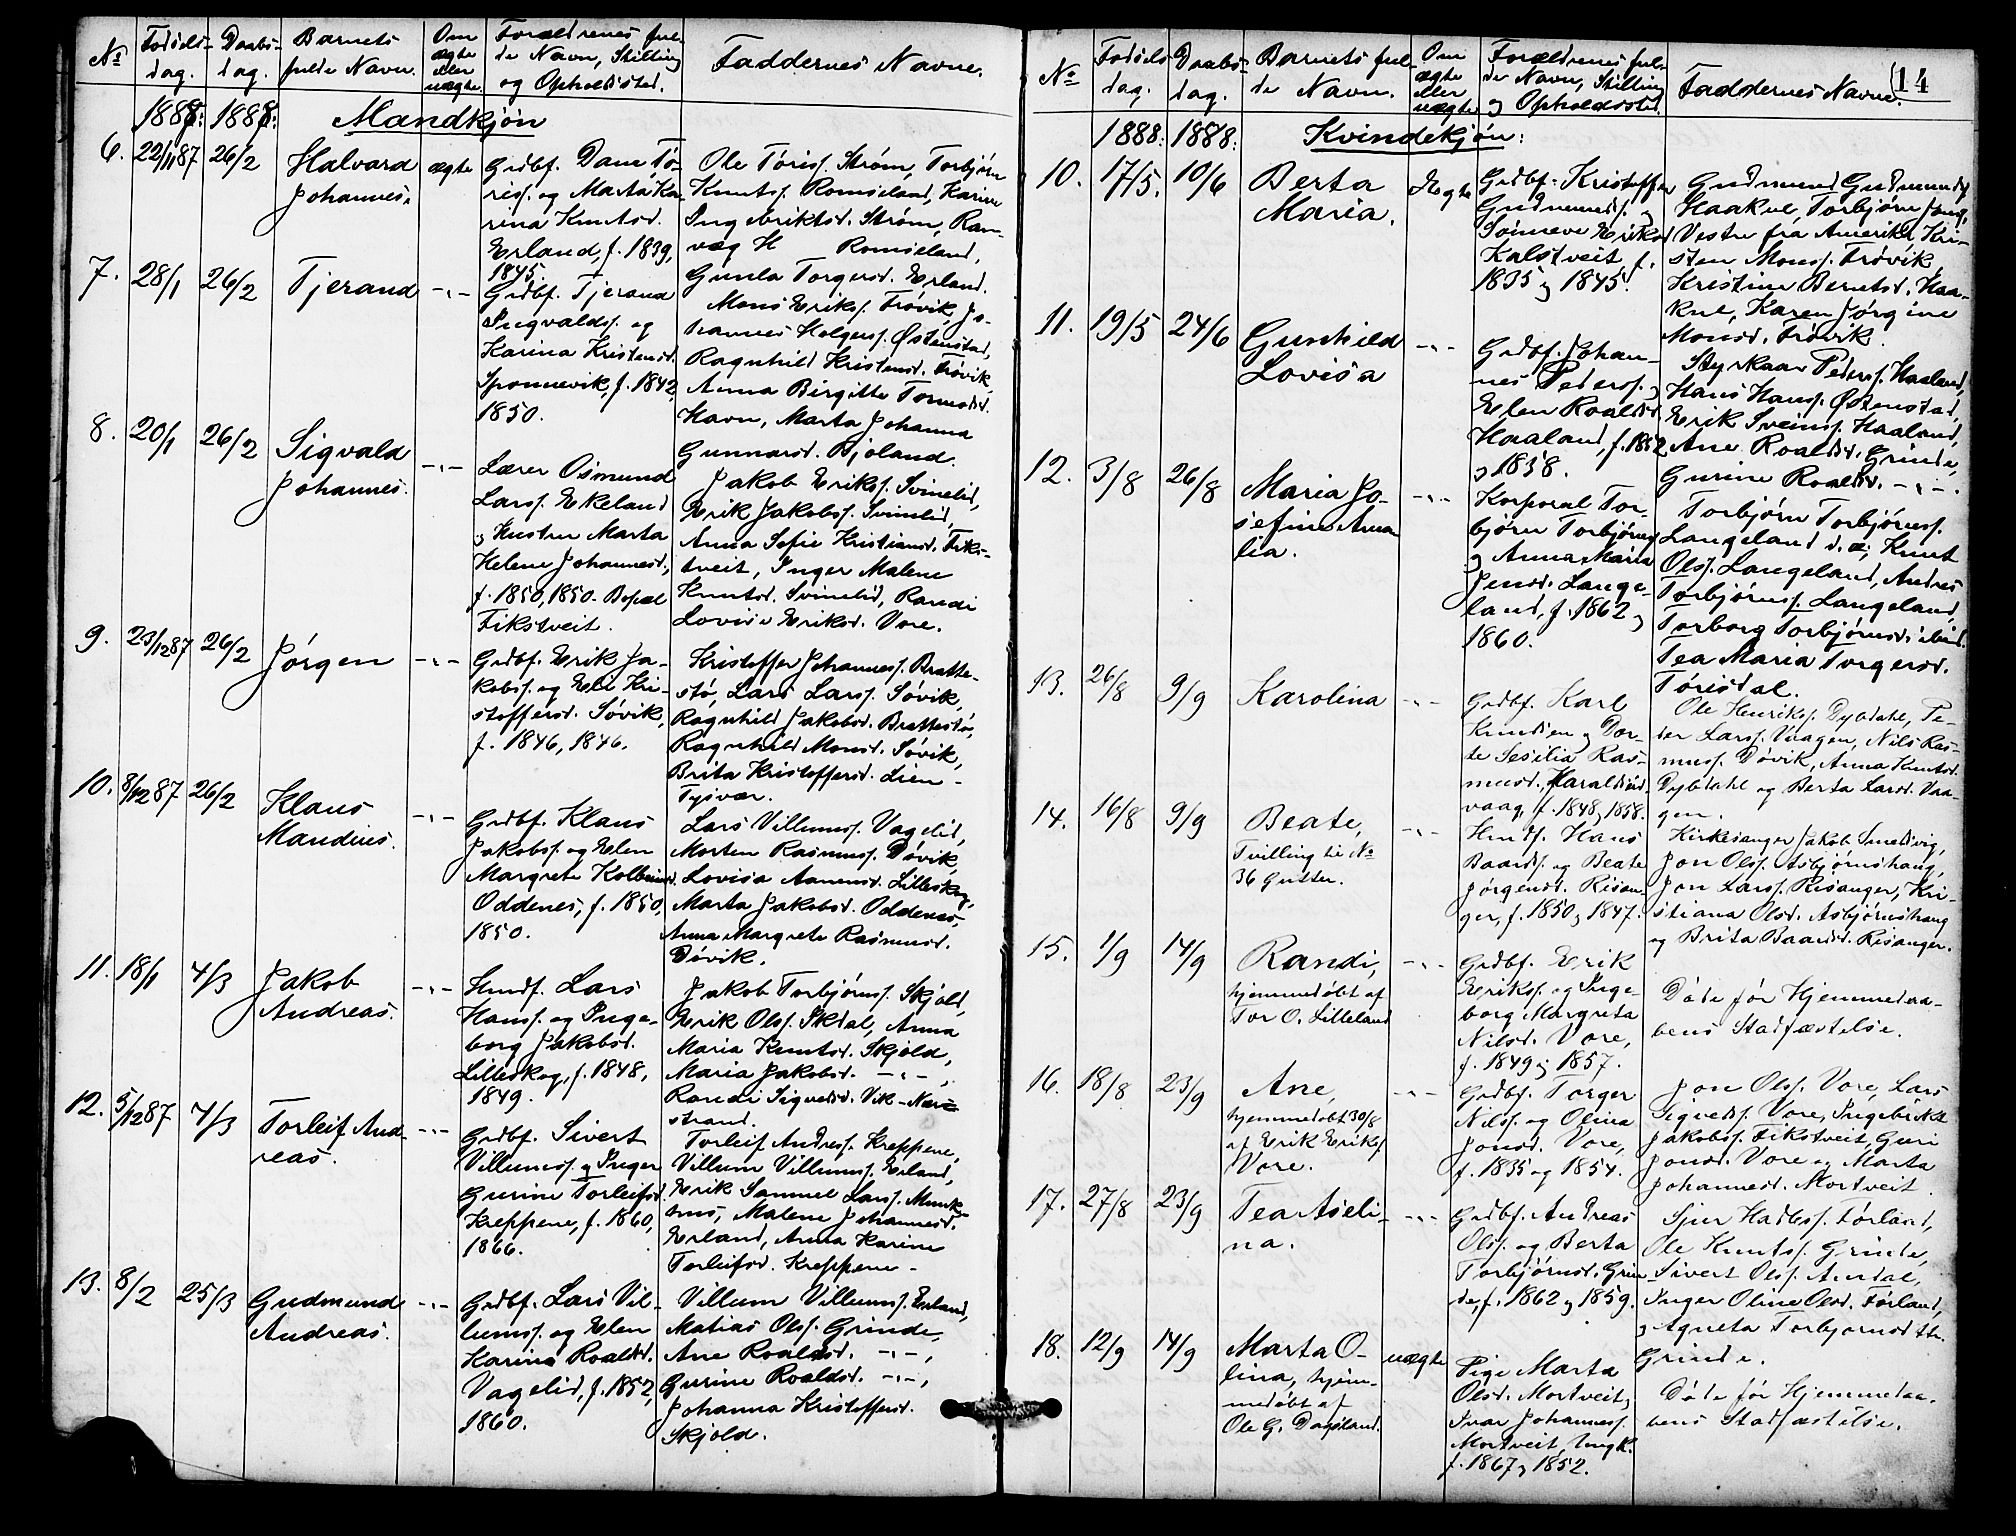 №
Fødsels-
dag.
Daabs-
dag.
Barnets
fulde Navn.
Om
ægte
eller
uægte
Forældrenes ful-
de Navn, Stilling
og Opholdssted.
Faddernes Navne.
1888: 1888: Mandkjøn
6. 22/11 87 26/2
Halvard
Johannes.
ægte
Grdbf. Dane Tø-
resf. og Marta Ka-
rina Knutsd.
Erland, f. 1839,
1845.
Ole Tørisf. Strøm, Torbjørn
Knutsf. Romseland, Karine
Ingebriktsd. Strøm, Ran-
væg H Romseland,
Gunla Torgersd. Erland.
7. 28/1 26/2
Tjerand
-"-
Grdbf. Tjerand
Ingvaldsf. og
Karina Kristensd.
Sponnevik, f. 1842
1850.
Mons Eriksf. Frøvik, Jo-
hannes Helgesf. Østenstad,
Ragnhild Kristensd. Frøvik,
Anna Birgitte Tormodsd.
Havn, Marta Johanna
Gunnarsd. Bjoland.
8. 20/1 26/2
Sigvald
Johannes.
-"-
Lærer Osmund
Larsf. Ekeland
og Hustru Marta
Helene Johannesd.,
f. 1850, 1850. Bopæl
Fikstveit.
Jakob Eriksf. Svinelid,
Erik Jakobsf. Svinelid,
Anna Sofie Kristiansd. Fiks-
tveit, Inger Malene
Knutsd. Svinelid, Randi
Lovise Eriksd. Vore.
9. 23/12 87 26/2
Jørgen
-"-
Grdbf. Erik Ja-
kobsf. og Eli Kri-
stoffersd. Søvik,
f. 1846, 1846.
Kristoffer Johannesf. Bratte-
stø, Lars Larsf. Søvik,
Ragnhild Jakobsd. Brattestø,
Ragnhild Monsd. Søvik,
Brita Kristoffersd. Lien-
Tysvær.
10. 8/12 87 26/2
Klaus
Mandius.
-"-
Grdbf. Klaus
Jakobsf. og Elen
Margrete Kolbeinsd.
Oddenes, f. 1850,
1850.
Lars Villumsf. Vagelid,
Morten Rasmusf. Døvik,
Lovisa Aanensd. Lilleskog,
Marta Jakobsd. Oddenes,
Anna Margrete Rasmusd.
Døvik.
11. 18/1 4/3
Jakob
Andreas.
-"-
Hmdf. Lars
Hansf. og Inge-
borg Jakobsd.
Lilleskog, f. 1848,
1849.
Jakob Torbjørnsf. Skjold,
Erik Olsf. Skdal, Anna
Maria Knutsd. Skjold,
Maria Jakobsd. -"-,
Randi Sigvedsd. Vik-Nær-
strand.
12. 5/12 87 4/3
Torleif And-
reas.
-"-
Grdbf. Sivert
Villumsf. og Inger
Gurine Torleifsd.
Kreppene, f. 1860,
1866.
Torleif Andresf. Kreppene,
Villum Villumsf. Erland,
Erik Samuel Larsf. Munk-
Malene Johannesd.
Erland, Anna Karine
Torleifsd. Kreppene-
13. 8/2 25/3
Gudmund
Andreas.
-"-
Grdbf. Lars Vil-
lumsf. og Elen
Karina Roaldsd.
Vagelid, f. 1852,
1860.
Villum Villumsf. Erland,
Matias Olsf. Grinde,
Ane Roaldsd. -"-,
Gurine Roaldsd. -"-,
Johanna Kristoffersd.
Skjold.
14
№
Fødsels-
dag.
Daabs-
dag.
Barnets ful-
de Navn.
Om
ægte
eller
uægte
Forældrenes ful-
de Navn, Stilling
og Opholdssted.
Faddernes Navne.
1888. 1888. Kvindekjøn:
10. 17/5. 10/6
Berta
Maria.
Ægte
Grdbf. Kristoffer
Gudmundsf. og
Sønneve Eriksd.
Kalstveit f.
1835 og 1845.
Gudmund Gudmundsf.
Haakul, Torbjørn
Vestre fra Amerika, Kri-
sten Monsf. Frøvik,
Kristine Berntsd. Haa-
kul, Karen Jørgine
Monsd. Frøvik.
11. 19/5 24/6
Gunhild
Lovisa
-"-
Grdbf. Johan-
nes Pedersf. og
Elen Roaldsd.
Haaland, f. 1852
og 1858.
Styrkaar Pedersf. Haaland,
Hans Hansf. Østenstad,
Erik Sveinsf. Haaland,
Ane Roaldsd. Grinde,
Gurine Roaldsd. -"-.
12. 3/8 26/8
Maria Jo-
sefine Ama-
lia.
-"-
Korporal Tor-
bjørn Torbjørnsf.
og Anna Maria
Jensd. Lange-
land, f. 1862 og
1860.
Torbjørn Torbjørnsf.
Langeland d.æ., Knut
Olsf. Langeland, Andres
Torbjørnsf. Langeland,
Torborg Torbjørnsd. ibid.
Tea Maria Torgersd.
Tørisdal.
13. 26/8 9/9
Karolina
-"-
Grdbf. Karl
Knudsen og Dor-
te Sesilia Ras-
musd. Haralds
vaag, f. 1848 og 1858.
Ole Henriksf. Dybdahl, Pe-
der Larsf. Vaagen, Nils Ras-
musf. Døvik, Anna Knutsd.
Dybdahl og Berta Larsd. Vaa-
gen.
14. 16/8 9/9
Beate,
Tvilling til №
36 Gutter.
-"-
Hmdf. Hans
Baardsf. og Beate
Jørgensd. Risan-
ger, f. 1850 og 1847.
Kirkesanger Jakob Smedsvig,
Jon Olsf. Asbjørnshaug,
Jon Larsf. Risanger, Kri-
stiana Olsd. Asbjørnshaug
og Brita Baardsd. Risanger.
15. 1/9 14/9
Randi,
hjemmedøbt af
Tor O. Lilleland
-"-
Grdbf. Erik
Eriksf. og Inge-
borg Margreta
Nilsd. Vore,
f. 1849 og 1857.
Døde før Hjemmedaa-
bens Stadfæstelse.
16. 18/8 23/9
Ane,
hjemmedøbt 30/8
af Erik Eriksf.
Vore.
-"-
Grdbf. Torger
Nilsf. og Olina
Jonsd. Vore,
f. 1835 og 1854.
Jon Olsf. Vore, Lars
Sigvedsf. Vore, Ingebrikt
Jakobsf. Fikstveit, Guri
Jonsd. Vore og Marta
Johannesd. Mortveit.
17. 27/8 23/9
Tea Aseli-
na.
-"-
Grdbf. Andreas
Olsf. og Berta
Torbjørnsd. Grin-
de, f. 1862 og 1859.
Sjur Hadlesf. Førland,
Ole Knutsf. Grinde,
Sivert Olsf. Aardal,
Inger Oline Olsd. Førland,
og Agneta Torbjørnsd.
Grinde.
18. 12/9 14/9
Marta O-
lina, hjem-
medøbt af
Ole G. Dagsland.
uægte
Pige Marta
Olsd. Mortveit,
Ivar Johannesf.
Mortveit, Ungk.
f. 1867 og 1852.
Døde før Hjemmedaa-
bens Stadfæstelse.